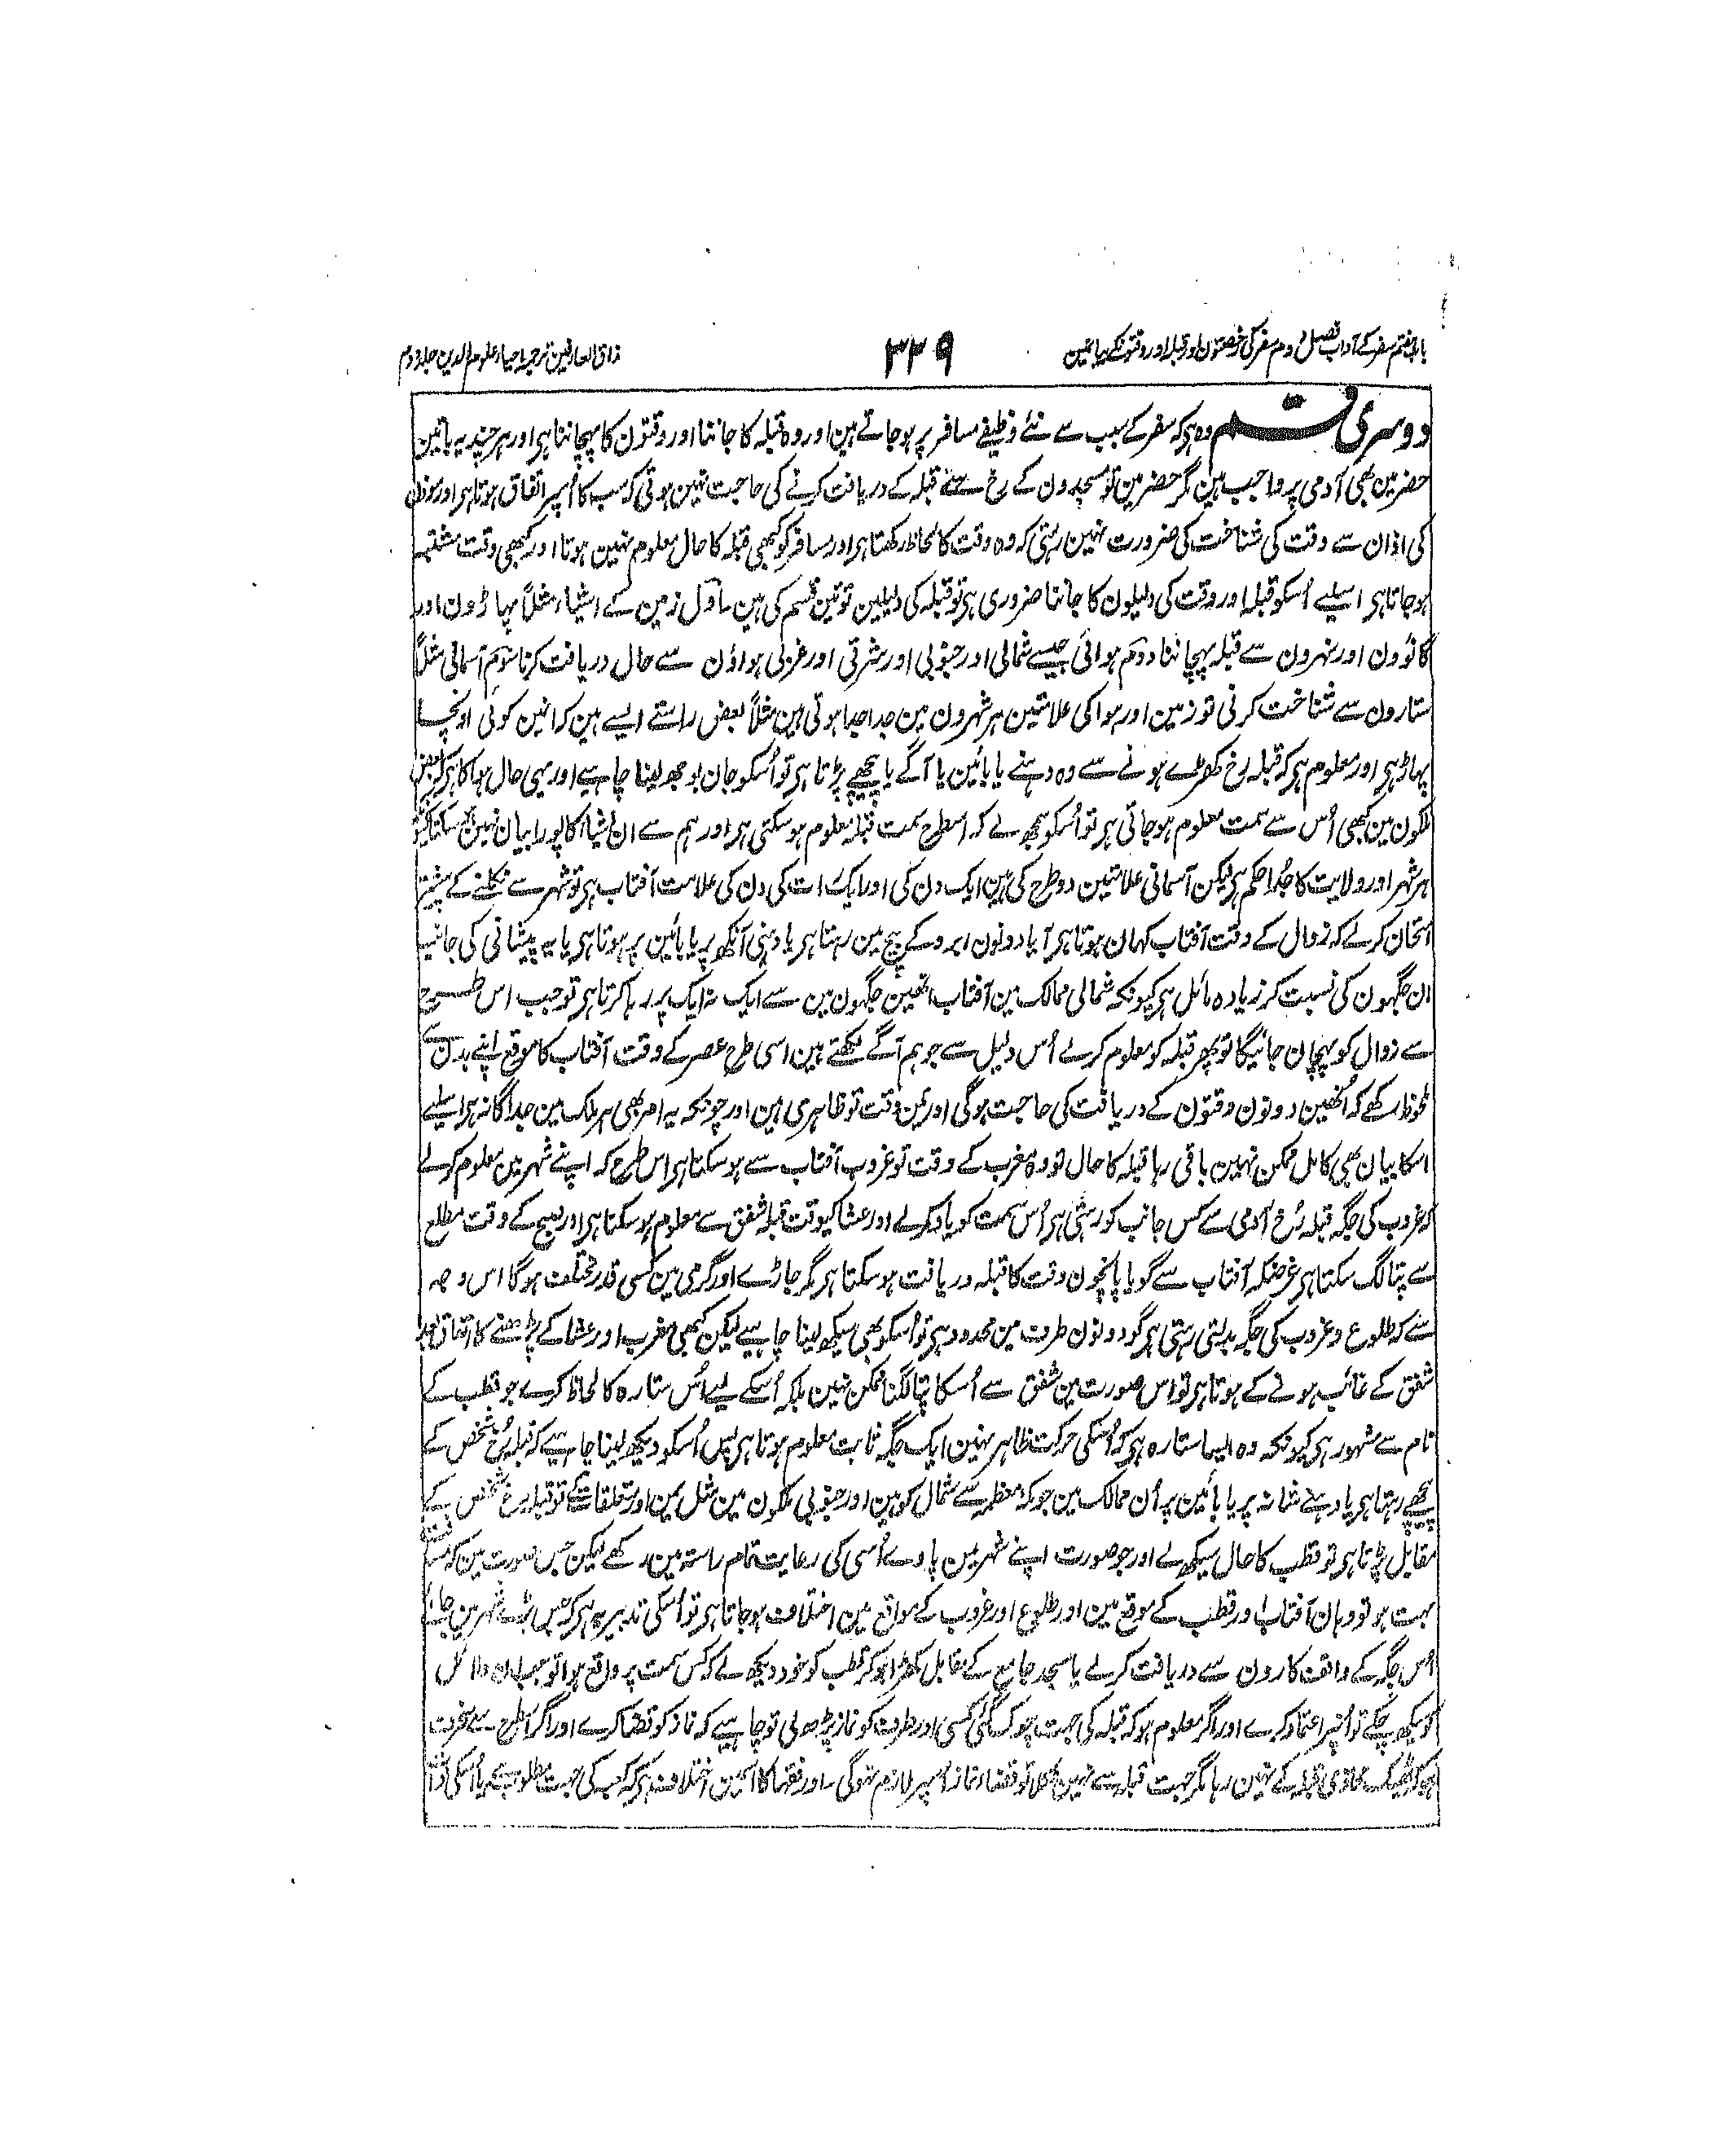 باب ہفتم سفر کے آداب فصل دوم سفر کی رخصتون اور قبلہ اور وقتونکے بیانمین
۳۳۹
مذاق العارفین ترجمہ احیاء علوم الدین جلد دوم
دوسری قسم وہ ہی کہ سفر کے سبب سے نئے وظیفے مسافر پر ہوجاتے ہین اور وہ قبلہ کا جاننا اور وقتون کا پہچاننا ہی اور ہر چند یہ باتین
حضر مین بھی آدمی پر واجب ہین مگر حضر مین تو مسجدون کے رخ سے قبلہ کے دریافت کرنے کی حاجت نہین ہوتی کہ سب کا اُسپر اتفاق ہوتا ہی اور موذن
کی اذان سے وقت کی شناخت کی ضرورت نہین رہتی کہ وہ وقت کا لحاظ رکھتا ہی اور مسافر کو کبھی قبلہ کا حال معلوم نہین ہوتا اور کبھی وقت مشتبہ
ہوجاتا ہی اسلیے اُسکو قبلہ اور وقت کی دلیلون کا جاننا ضروری ہی تو قبلہ کی دلیلین تو تین قسم کی ہین اول زمین کے اشیاء مثلاً پہاڑون اور
گانؤون اور نہرون سے قبلہ پہچاننا دوم ہوائی جیسے شمالی اور جنوبی اور شرقی اور غربی ہواؤن سے حال دریافت کرنا سوم آسمانی مثلاً
ستارون سے شناخت کرنی تو زمین اور ہوا کی علامتین ہر شہرون مین جدا جدا ہوتی ہین مثلاً بعض راستے ایسے ہین کہ انمین کوئی اونچا
پہاڑ ہی اور معلوم ہی کہ قبلہ رخ کھڑے ہونے سے وہ دہنے یا بائین یا آگے یا پیچھے پڑتا ہی تو اُسکو جان بوجھ لینا چاہیے اور یہی حال ہوا کا ہی کہ بعض
ملکون مین کبھی اُس سے سمت معلوم ہوجاتی ہی تو اُسکو سمجھ لے کہ اسطرح سمت قبلہ معلوم ہوسکتی ہی اور ہم سے ان اشیاء کا پورا بیان نہین ہوسکتا کیونکہ
ہر شہر اور ولایت کا جُدا حکم ہی لیکن آسمانی علامتین دو طرح کی ہین ایک دن کی اور ایک رات کی دن کی علامت آفتاب ہی تو شہر سے نکلنے کے پیشتر
امتحان کرلے کہ زوال کے وقت آفتاب کہان ہوتا ہی آیا دونون ابرو کے بیچ مین رہتا ہی یا دہنی آنکھ پر یا بائین پر ہوتا ہی یا یہ پیشانی کی جانب
ان جگہون کی نسبت کر زیادہ مائل ہی کیونکہ شمالی ممالک مین آفتاب انھین جگہون مین سے ایک نہ ایک پر رہا کرتا ہی تو جب اس طرح
سے زوال کو پہچان جائیگا تو پھر قبلہ کو معلوم کرلے اُس دلیل سے جو ہم آگے لکھتے ہین اسی طرح عصر کے وقت آفتاب کا موقع اپنے بدن سے
ملحوظ رکھے کہ اُنھین دونون وقتون کے دریافت کی حاجت ہوگی اور تین وقت تو ظاہر ہی ہین اور چونکہ یہ امر بھی ہر ملک مین جداگانہ ہی اسلیے
اسکا بیان بھی کامل ممکن نہین باقی رہا قبلہ کا حال تو وہ مغرب کے وقت تو غروب آفتاب سے ہوسکتا ہی اس طرح کہ اپنے شہر مین معلوم کرلے
کہ غروب کی جگہ قبلہ رُخ آدمی سے کس جانب کو رہتی ہی اُس سمت کو یاد کرلے اور عشا کیوقت قبلہ شفق سے معلوم ہوسکتا ہی اور صبح کے وقت مطلع
سے پتا لگ سکتا ہی غرضکہ آفتاب سے گویا پانچون وقت کا قبلہ دریافت ہوسکتا ہی مگر جاڑے اور گرمی مین کسی قدر مختلف ہوگا اس وجہ
سے کہ طلوع و غروب کی جگہ بدلتی رہتی ہی گو دونون طرف مین محدود ہی تو اُسکو بھی سیکھ لینا چاہیے لیکن کبھی مغرب اور عشا کے پڑھنے کا اتفاق بعد
شفق کے غائب ہونے کے ہوتا ہی تو اس صورت مین شفق سے اُسکا پتا لگنا ممکن نہین بلکہ اُسکے لیے اُس ستارہ کا لحاظ کرے جو قطب کے
نام سے مشہور ہی کیونکہ وہ ایسا ستارہ ہی کہ اُسکی حرکت ظاہر نہین ایک جگہ ثابت معلوم ہوتا ہی پس اُسکو دیکھ لینا چاہیے کہ قبلہ رُخ شخص کے
پیچھے رہتا ہی یا دہنے شانہ پر یا بائین پر اُن ممالک مین جو مکہ معظمہ سے شمال کو ہین اور جنوبی ملکون مین مثل یمن اور متعلقات کے تو قبلہ رخ شخص کے
مقابل پڑتا ہی تو قطب کا حال سیکھ لے اور جو صورت اپنے شہر مین پاوے اُسی کی رعایت تمام راستہ مین رکھے لیکن جس صورت مین کہ مسافت
بہت ہو تو وہان آفتاب اور قطب کے موقع مین اور طلوع اور غروب کے مواقع مین اختلاف ہوجاتا ہی تو اُسکی تدبیر یہ ہی کہ جس بڑے شہر مین جائے
اُس جگہ کے واقف کارون سے دریافت کرلے یا مسجد جامع کے مقابل کھڑا ہوکر قطب کو خود دیکھ لے کہ کس سمت پر واقع ہوا تو جب ان دلائل
کو سیکھ چکے تو اُنپر اعتماد کرے اور اگر معلوم ہو کہ قبلہ کی جہت چوک گئی کسی اور طرف کو نماز پڑھ لی تو چاہیے کہ نماز کو قضا کرے اور اگر اسطرح سے منحرف
ہو کہ ٹھیک محاذی قبلہ کے نہین رہا مگر جہت قبلہ سے نہین نکلا تو قضاء نماز اُسپر لازم نہوگی اور فقہا کا اسمین اختلاف ہی کہ کعبہ کی جہت مطلوب ہے یا اُسکی ذات